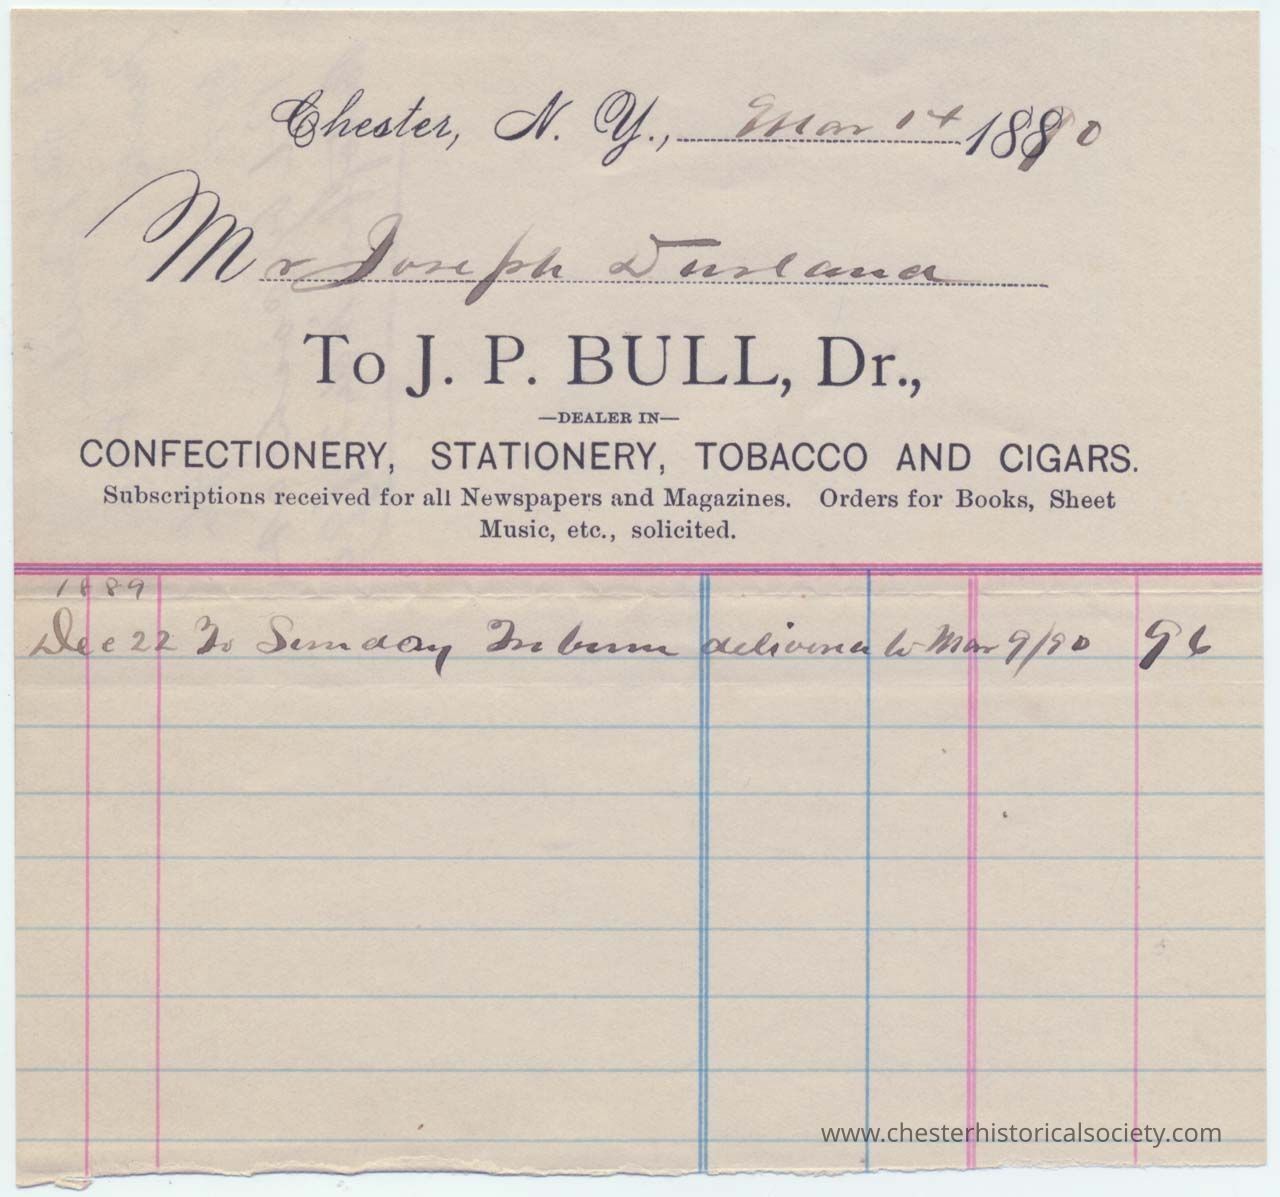 Chester, N. Y., Mar 14 1890
Mr Joseph Durland
To J. P. BULL, Dr.,
—DEALER IN—
CONFECTIONERY, STATIONERY, TOBACCO AND CIGARS.
Subscriptions received for all Newspapers and Magazines. Orders for Books, Sheet
Music, etc., solicited.
1889
Dec 22 To Sunday Tribune delivered to Mar 9/90 96
www.chesterhistoricalsociety.com